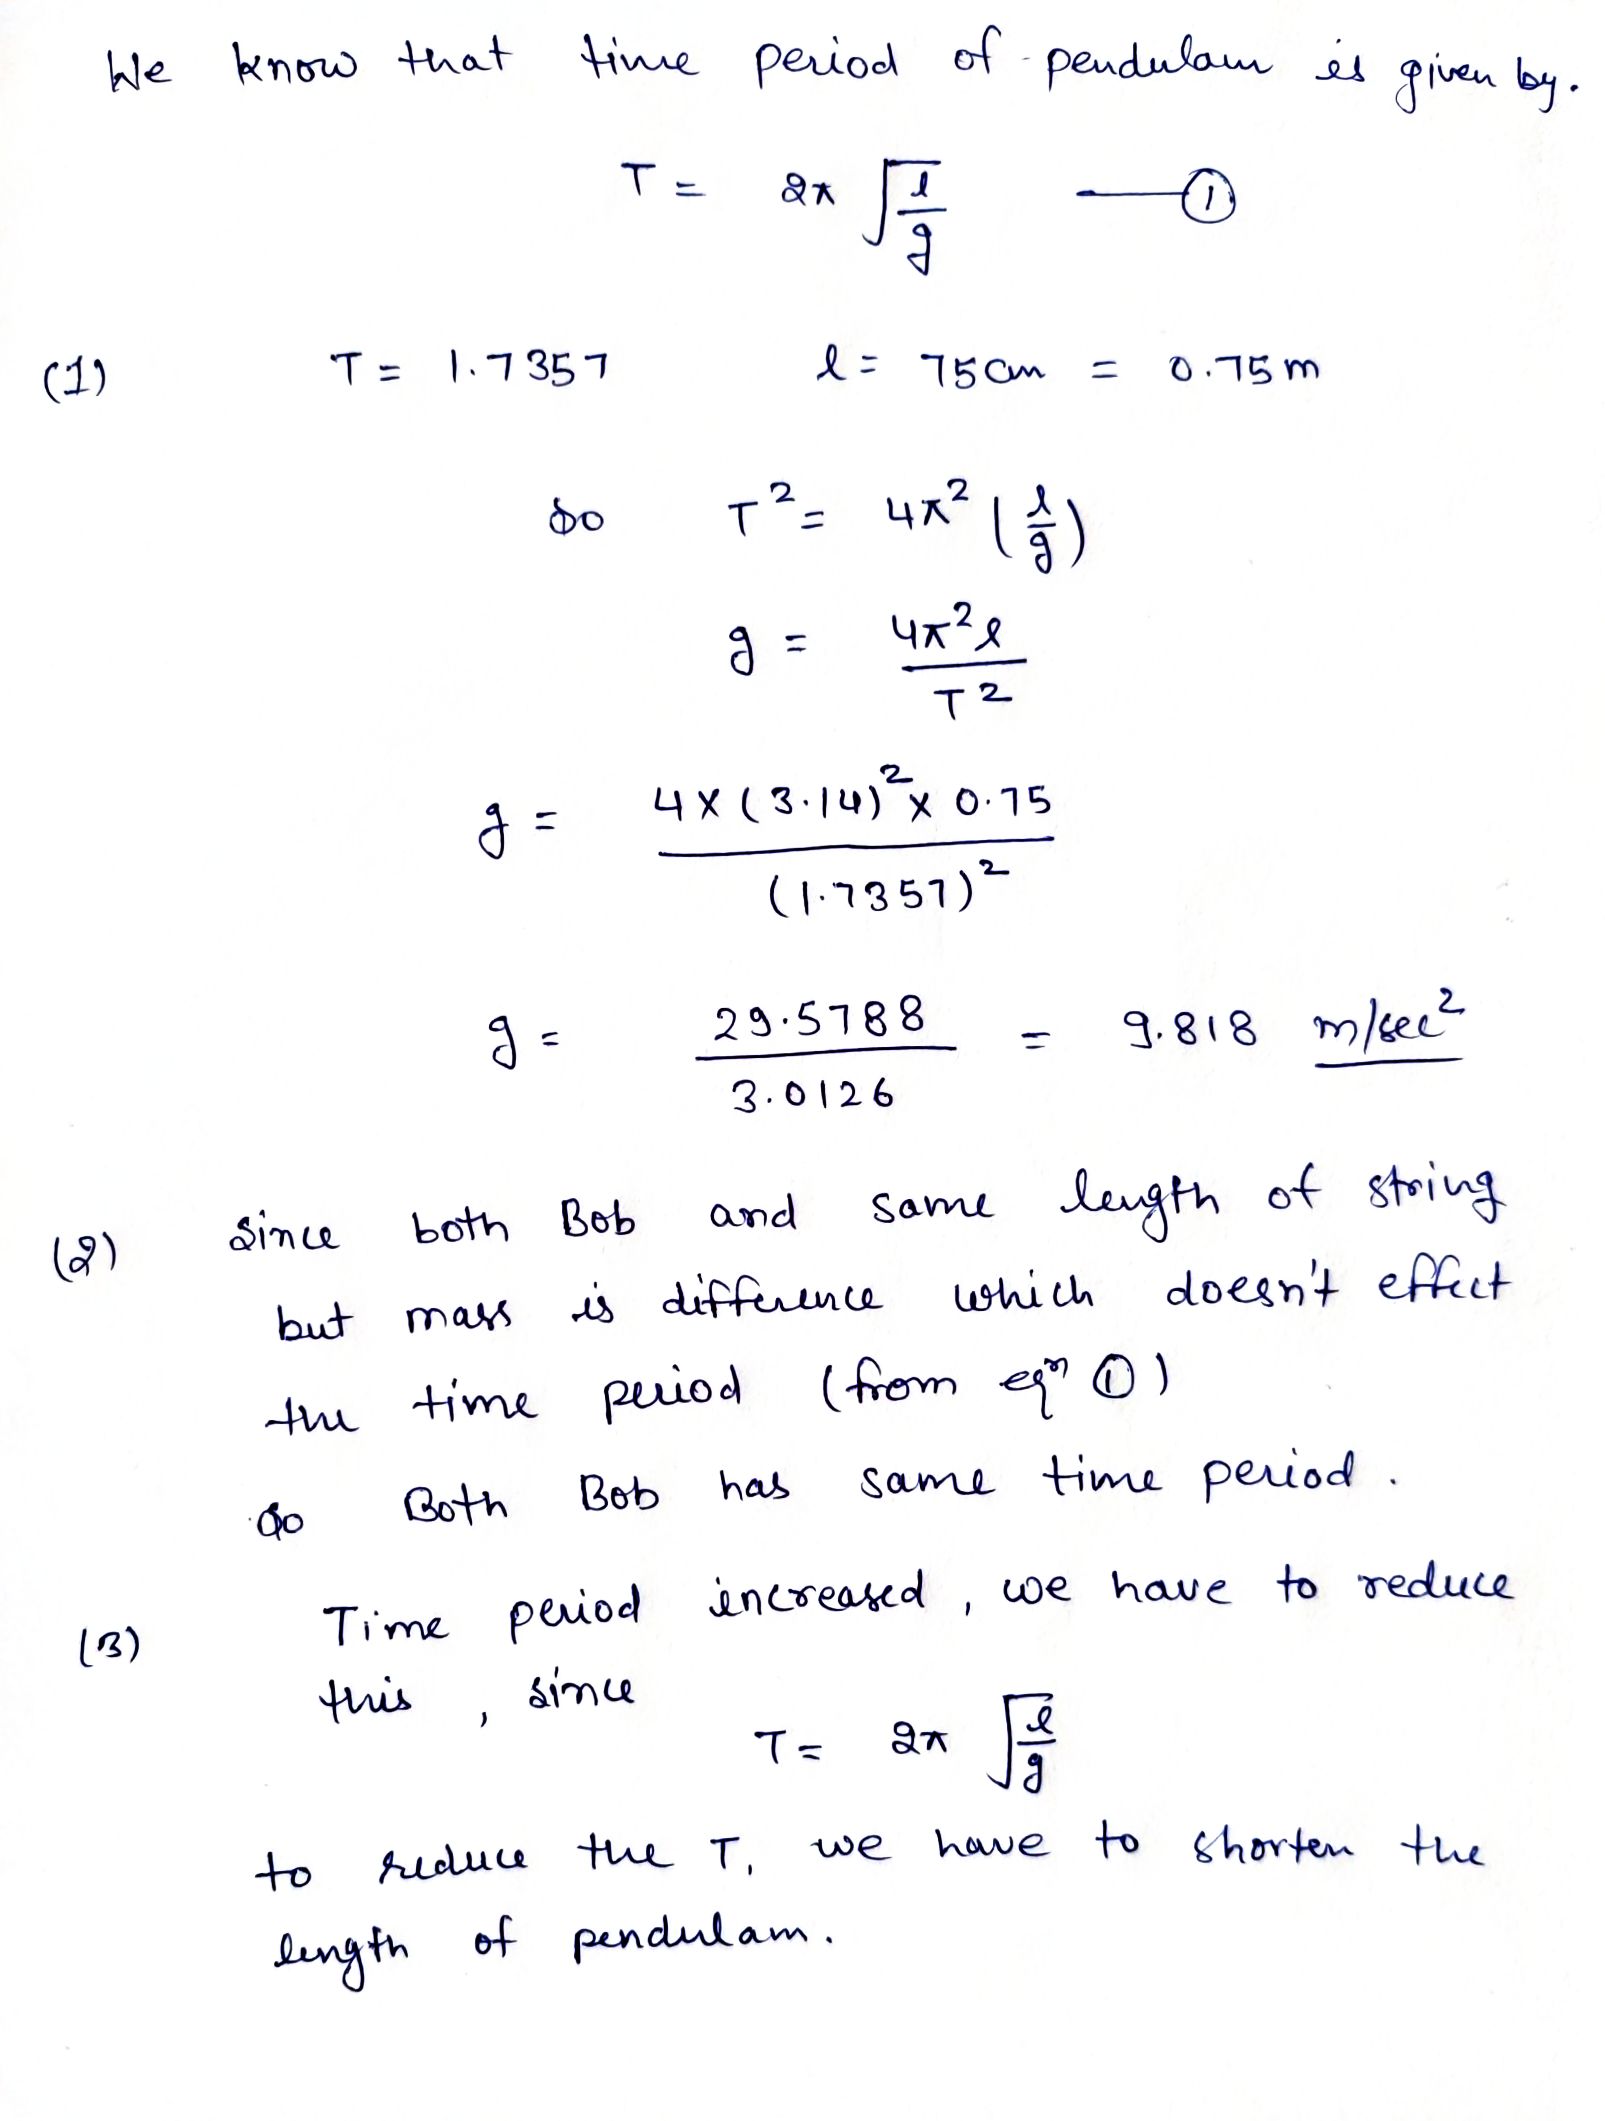 We know that time period of pendulam is given by.
T = 2π √(l/g) —①
(1) T = 1.7357 l = 75cm = 0.75m
so T² = 4π² (l/g)
g = 4π²l / T²
g = 4 x (3.14)² x 0.75 / (1.7357)²
g = 29.5788 / 3.0126 = 9.818 m/sec²
(2) since both Bob and same length of string
but mass is difference which doesn't effect
the time period (from eqⁿ ①)
so Both Bob has same time period.
(3) Time period increased, we have to reduce
this, since
T = 2π √(l/g)
to reduce the T, we have to shorten the
length of pendulam.